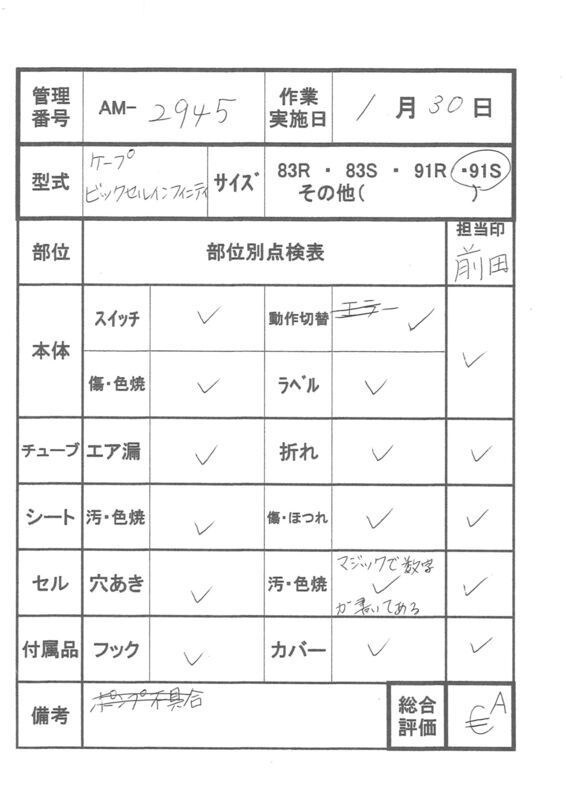 管理番号 AM- 2945 作業実施日 1月30日
型式 ケープ ビックセルインフィニティ サイズ 83R ・ 83S ・ 91R ・91S
その他( )
部位 部位別点検表 担当印 前田
本体 スイッチ ✓ 動作切替 エラー ✓ ✓
傷・色焼 ✓ ラベル ✓
チューブ エア漏 ✓ 折れ ✓ ✓
シート 汚・色焼 ✓ 傷・ほつれ ✓ ✓
セル 穴あき ✓ 汚・色焼 マジックで数字が書いてある ✓ ✓
付属品 フック ✓ カバー ✓ ✓
備考 ポンプ不具合 総合評価 A